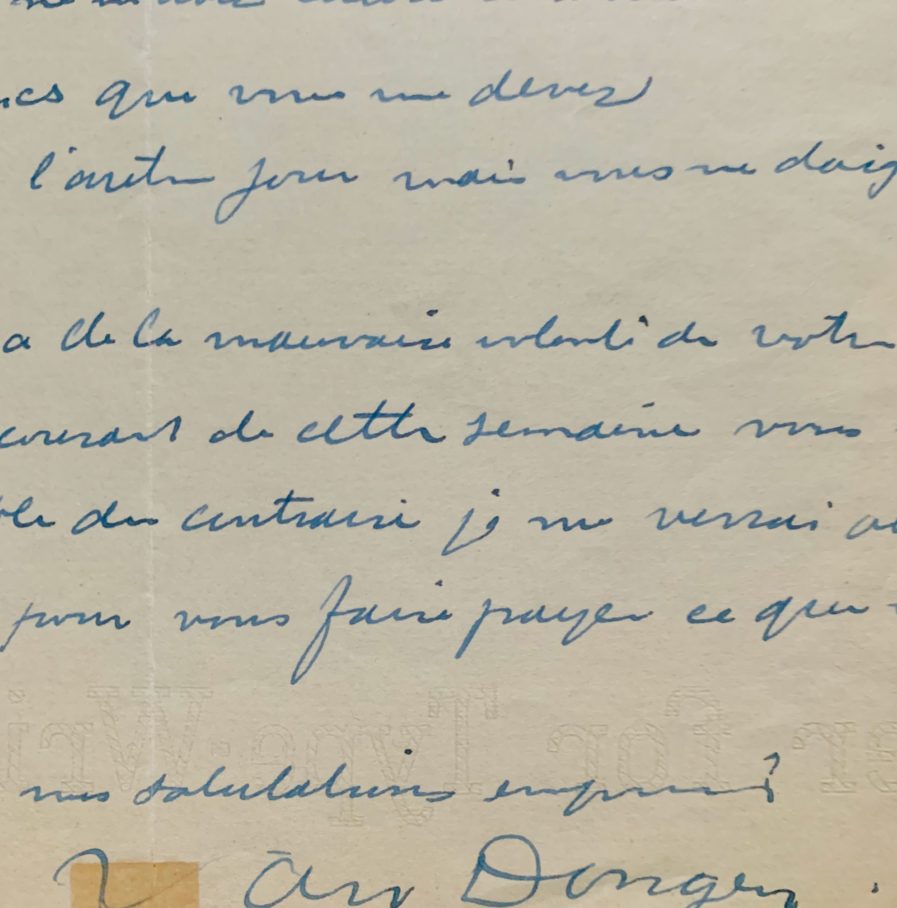 que vous me devez
l'autre jour mais vous ne daig
a de la mauvaise volonté de votre
courant de cette semaine vous
ble du contraire je me verrai
pour vous faire payer ce que
er For Type-Wri
mes salutations
Van Dongen